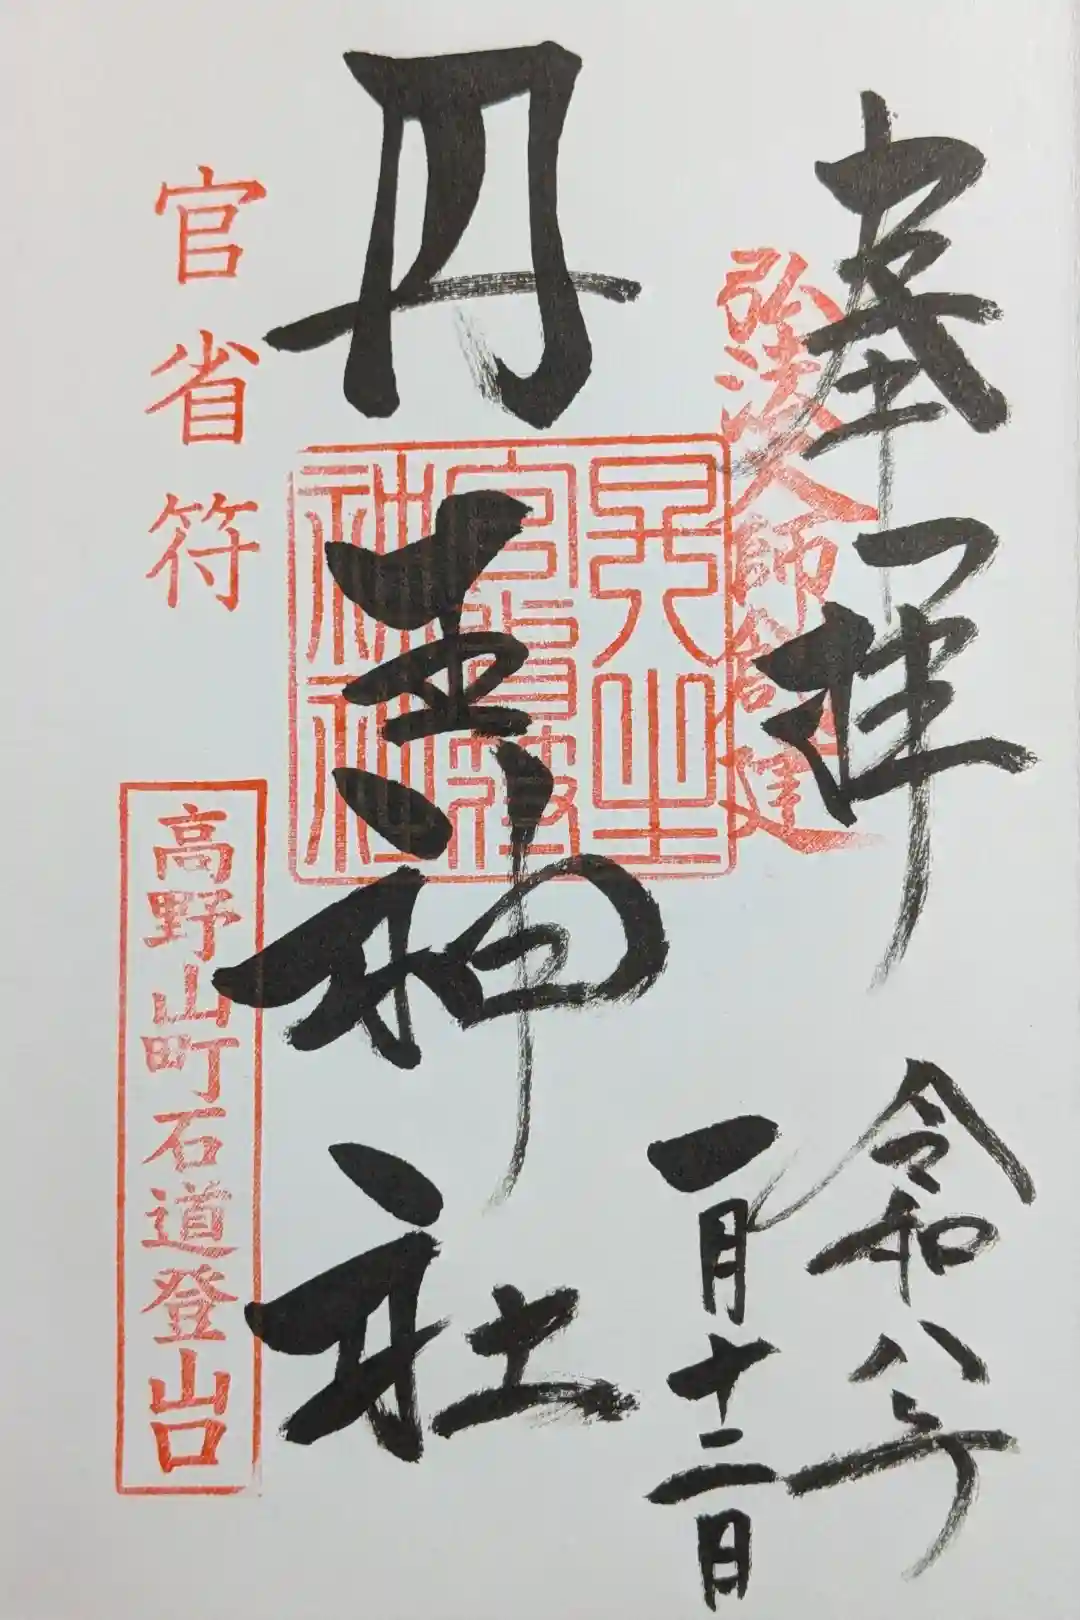 奉拝
弘法大師創建
令和八年
一月十二日
丹生神社
丹生官省符神社
官省符
高野山町石道登山口